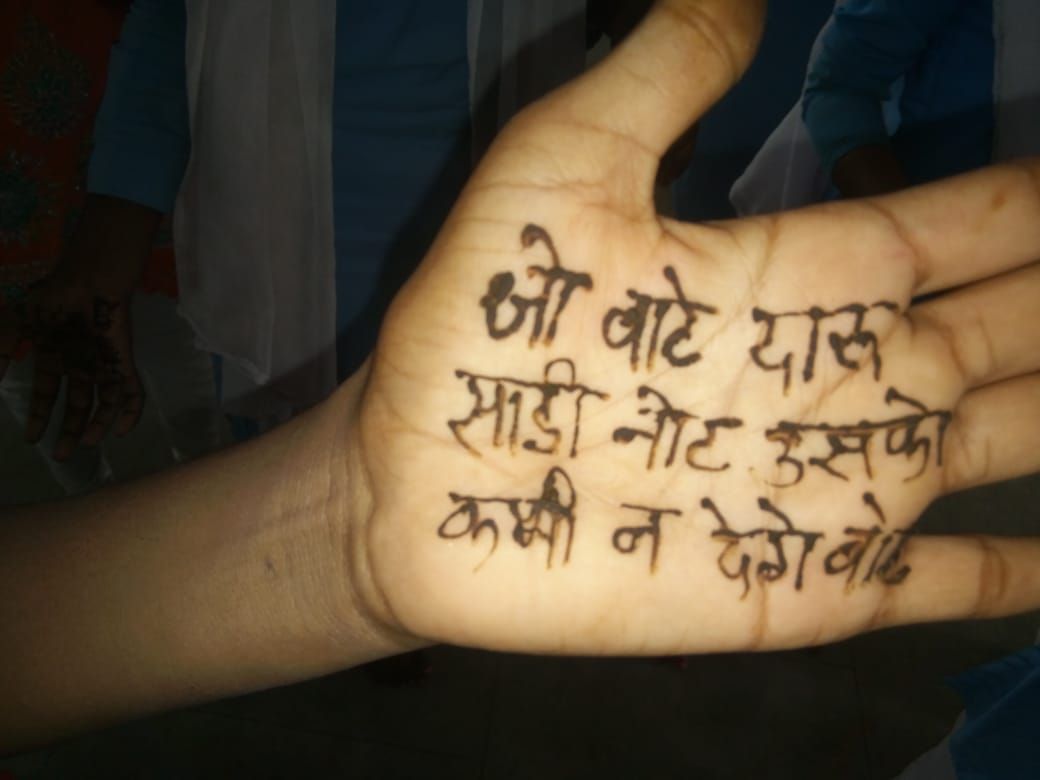 जो बाटे दारू
साडी नोट उसको
कभी न देगे वोट